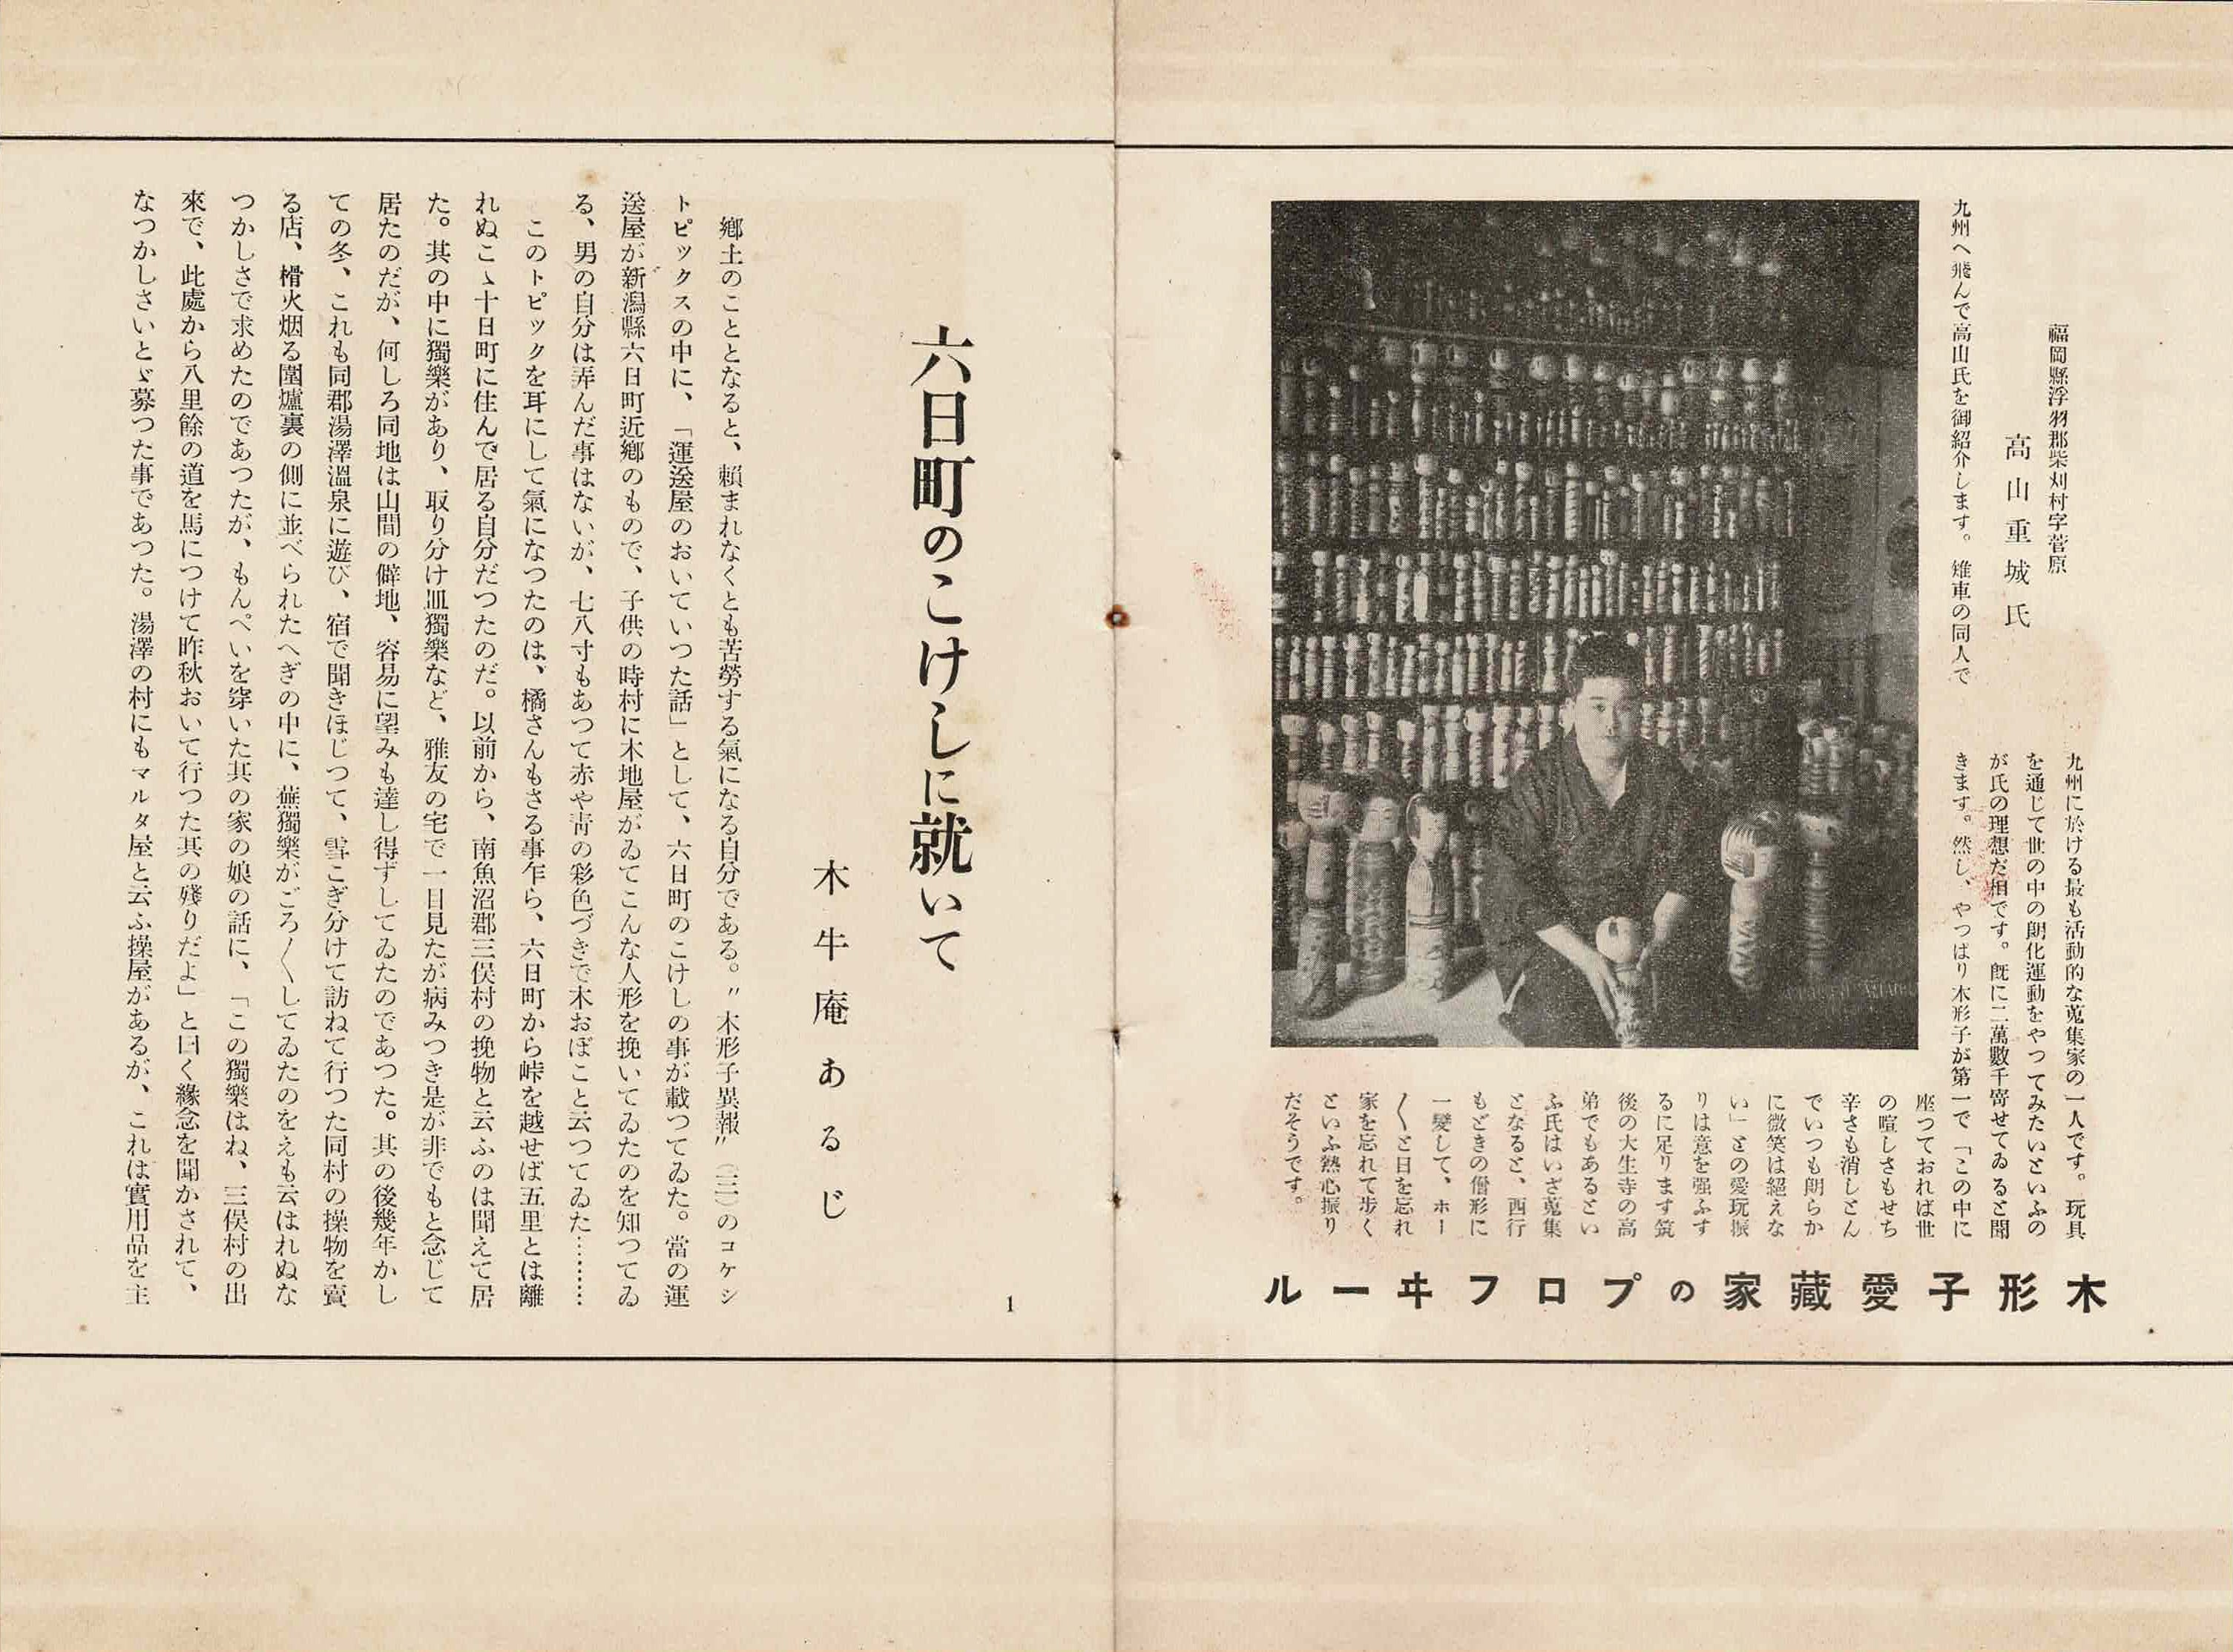 木形子愛藏家のプロフヰール
福岡縣浮羽郡柴刈村字菅原
高山重城氏
九州へ飛んで高山氏を御紹介します。雉車の同人で
九州に於ける最も活動的な蒐集家の一人です。玩具
を通じて世の中の朗化運動をやつてみたいといふの
が氏の理想だ相です。既に二萬數千寄せてゐると聞
きます。然し、やつぱり木形子が第一で「この中に
座つておれば世
の喧しさもせち
辛さも消しとん
でいつも朗らか
に微笑は絕えな
い」との愛玩振
りは意を强ふす
るに足ります筑
後の大生寺の高
弟でもあるとい
ふ氏はいざ蒐集
となると、西行
もどきの僧形に
一變して、ホー
〱と日を忘れ
家を忘れて步く
といふ熱心振り
だそうです。
六日町のこけしに就いて
木牛庵あるじ
鄕土のこととなると、賴まれなくとも苦勞する氣になる自分である。〃木形子異報〃（三）のコケシ
トピックスの中に、「運送屋のおいていつた話」として、六日町のこけしの事が載つてゐた。當の運
送屋が新潟縣六日町近鄕のもので、子供の時村に木地屋がゐてこんな人形を挽いてゐたのを知つてゐ
る、男の自分は弄んだ事はないが、七八寸もあつて赤や靑の彩色づきで木おぼこと云つてゐた………
このトピックを耳にして氣になつたのは、橘さんもさる事乍ら、六日町から峠を越せば五里とは離
れぬこゝ十日町に住んで居る自分だつたのだ。以前から、南魚沼郡三俣村の挽物と云ふのは聞えて居
た。其の中に獨樂があり、取り分け皿獨樂など、雅友の宅で一目見たが病みつき是が非でもと念じて
居たのだが、何しろ同地は山間の僻地、容易に望みも達し得ずしてゐたのであつた。其の後幾年かし
ての冬、これも同郡湯澤溫泉に遊び、宿で聞きほじつて、雪こぎ分けて訪ねて行つた同村の操物を賣
る店、榾火烟る圍爐裏の側に並べられたへぎの中に、蕪獨樂がごろ〱してゐたのをえも云はれぬな
つかしさで求めたのであつたが、もんぺいを穿いた其の家の娘の話に、「この獨樂はね、三俣村の出
來で、此處から八里餘の道を馬につけて昨秋おいて行つた其の殘りだよ」と曰く緣念を聞かされて、
なつかしさいとゞ募つた事であつた。湯澤の村にもマルタ屋と云ふ操屋があるが、これは實用品を主
1